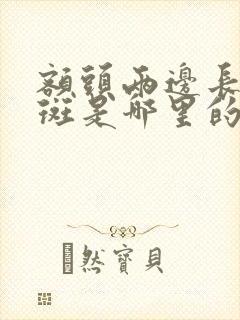 額頭兩邊長
斑是哪里的
然寶貝